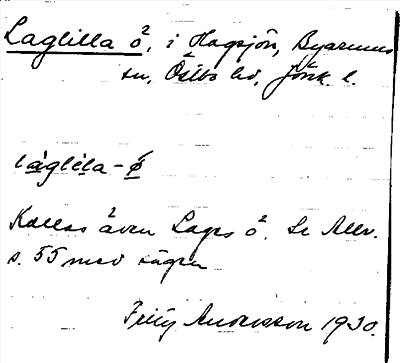 Laglilla ö², i Hagsjön, Byarums
sn, Östbo hd, Jönk. l.
låglila-ǿ
Kallas även Lages ö². Se Allv.
s. 55 med sägen
Fritz Andersson 1930.